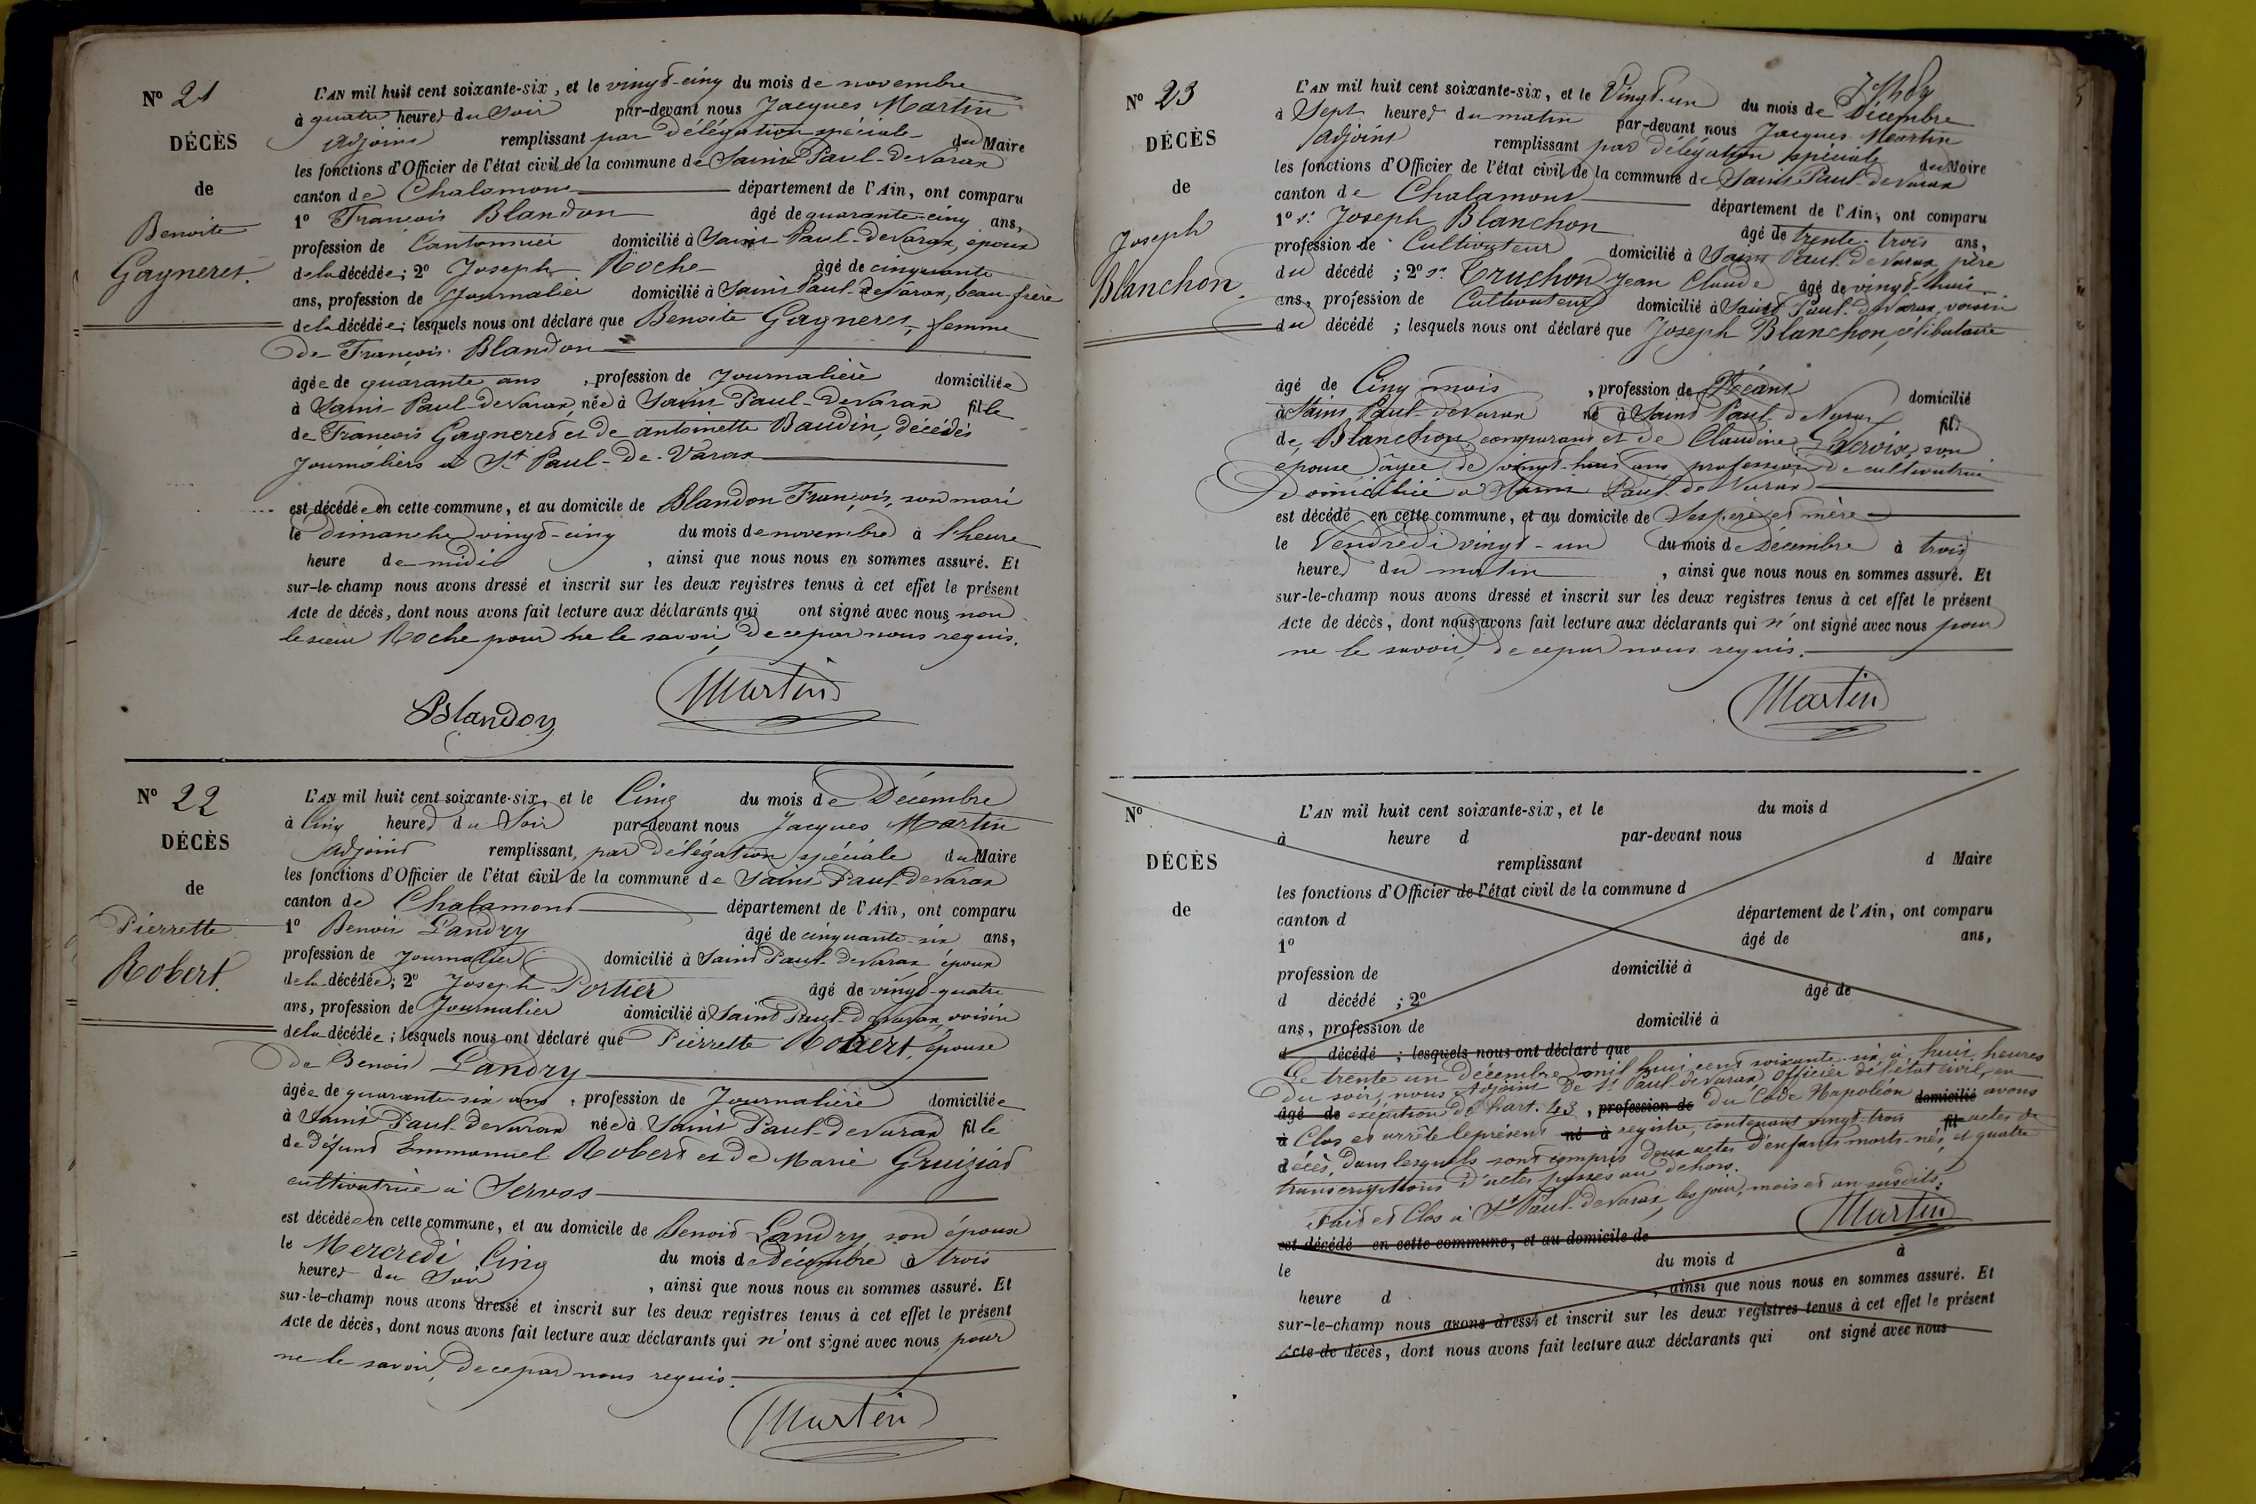 N° 21
DÉCÈS
de
Benoite
Gagneret.
L'AN mil huit cent soixante-six, et le vingt-cinq du mois de novembre
à quatre heures du Soir par-devant nous Jacques Martin
adjoint remplissant par délégation spéciale du Maire
les fonctions d'Officier de l'état civil de la commune de Saint Paul-de Varax
canton de Chalamont département de l'Ain, ont comparu
1° François Blandon âgé de quarante-cinq ans,
profession de Cantonnier domicilié à Saint Paul-de Varax, époux
de la décédée; 2° Joseph Roche âgé de cinquante
ans, profession de Journalier domicilié à Saint Paul-de Varax, beau-frère
de la décédée; lesquels nous ont déclaré que Benoite Gagneret, femme
de François Blandon
âgée de quarante ans, profession de Journalière domiciliée
à Saint-Paul-de Varax, née à Saint Paul-de Varax fille
de François Gagneret et de antoinette Baudin, décédés
Journaliers à St Paul-de-Varax
est décédée en cette commune, et au domicile de Blandon François, son mari
le dimanche vingt-cinq du mois de novembre à l'heure
heure de midi, ainsi que nous nous en sommes assuré. Et
sur-le-champ nous avons dressé et inscrit sur les deux registres tenus à cet effet le présent
Acte de décès, dont nous avons fait lecture aux déclarants qui ont signé avec nous, non
le sieur Roche pour ne le savoir, de ce par nous requis.
Blandon Martin
N° 22
DÉCÈS
de
Pierrette
Robert.
L'AN mil huit cent soixante-six, et le Cinq du mois de Décembre
à Cinq heures du Soir par-devant nous Jacques Martin
adjoint remplissant, par délégation spéciale du Maire
les fonctions d'Officier de l'état civil de la commune de Saint Paul-de Varax
canton de Chalamont département de l'Ain, ont comparu
1° Benoit Landry âgé de cinquante-six ans,
profession de Journalier domicilié à Saint Paul-de Varax époux
de la décédée; 2° Joseph Portier âgé de vingt-quatre
ans, profession de Journalier domicilié à Saint Paul-de Varax, voisin
de la décédée; lesquels nous ont déclaré que Pierrette Robert, épouse
de Benoit Landry
âgée de quarante-six ans, profession de Journalière domiciliée
à Saint Paul-de Varax née à Saint Paul-de Varax fille
de défunt Emmanuel Robert et de Marie Gruiziat
cultivatrice à Servas
est décédée en cette commune, et au domicile de Benoit Landry, son époux
le Mercredi Cinq du mois de Décembre à trois
heures du Soir, ainsi que nous nous en sommes assuré. Et
sur-le-champ nous avons dressé et inscrit sur les deux registres tenus à cet effet le présent
Acte de décès, dont nous avons fait lecture aux déclarants qui n'ont signé avec nous pour
ne le savoir, de ce par nous requis.
Martin
N° 23
DÉCÈS
de
Joseph
Blanchon.
L'AN mil huit cent soixante-six, et le Vingt-un du mois de Décembre
à Sept heures du matin par-devant nous Jacques Martin
adjoint remplissant par délégation spéciale du Maire
les fonctions d'Officier de l'état civil de la commune de Saint Paul-de Varax
canton de Chalamont département de l'Ain, ont comparu
1° sr Joseph Blanchon âgé de trente-trois ans,
profession de Cultivateur domicilié à Saint Paul-de Varax, père
du décédé; 2° sr Truchon Jean Claude âgé de vingt-huit
ans, profession de Cultivateur domicilié à Saint Paul-de Varax, voisin
du décédé; lesquels nous ont déclaré que Joseph Blanchon, célibataire
âgé de Cinq mois, profession de Néant domicilié
à Saint Paul-de Varax né à Saint Paul de Varax fils
de Blanchon, comparant et de Claudine Lacroix, son
épouse âgée de vingt-huit ans profession de cultivatrice
domiciliée à Saint Paul-de Varax
est décédé en cette commune, et au domicile de Ses père et mère
le Vendredi vingt-un du mois de Décembre à trois
heures du matin, ainsi que nous nous en sommes assuré. Et
sur-le-champ nous avons dressé et inscrit sur les deux registres tenus à cet effet le présent
Acte de décès, dont nous avons fait lecture aux déclarants qui n'ont signé avec nous pour
ne le savoir, de ce par nous requis.
Martin
N°
DÉCÈS
de
L'AN mil huit cent soixante-six, et le du mois d
à heure d par-devant nous
remplissant d Maire
les fonctions d'Officier de l'état civil de la commune d
canton d département de l'Ain, ont comparu
1° âgé de ans,
profession de domicilié à
d décédé; 2° âgé de
ans, profession de domicilié à
d décédé; lesquels nous ont déclaré que
Le trente un Décembre mil huit cent soixante-six à huit heures
du soir, nous Adjoint de St Paul-de Varax Officier de l'état civil, en
âgé de exécution de l'art. 43, profession de du Code Napoléon domicilié avons
à Clos et arrêté le présent né à registre, contenant vingt-trois fil actes de
décès, dans lesquels sont compris deux actes d'enfants morts-nés, et quatre
transcriptions d'actes passés au dehors.
Fait et Clos à St Paul-de Varax, les jour, mois et an susdits.
Martin
est décédé en cette commune, et au domicile de
le du mois d à
heure d, ainsi que nous nous en sommes assuré. Et
sur-le-champ nous avons dressé et inscrit sur les deux registres tenus à cet effet le présent
Acte de décès, dont nous avons fait lecture aux déclarants qui ont signé avec nous